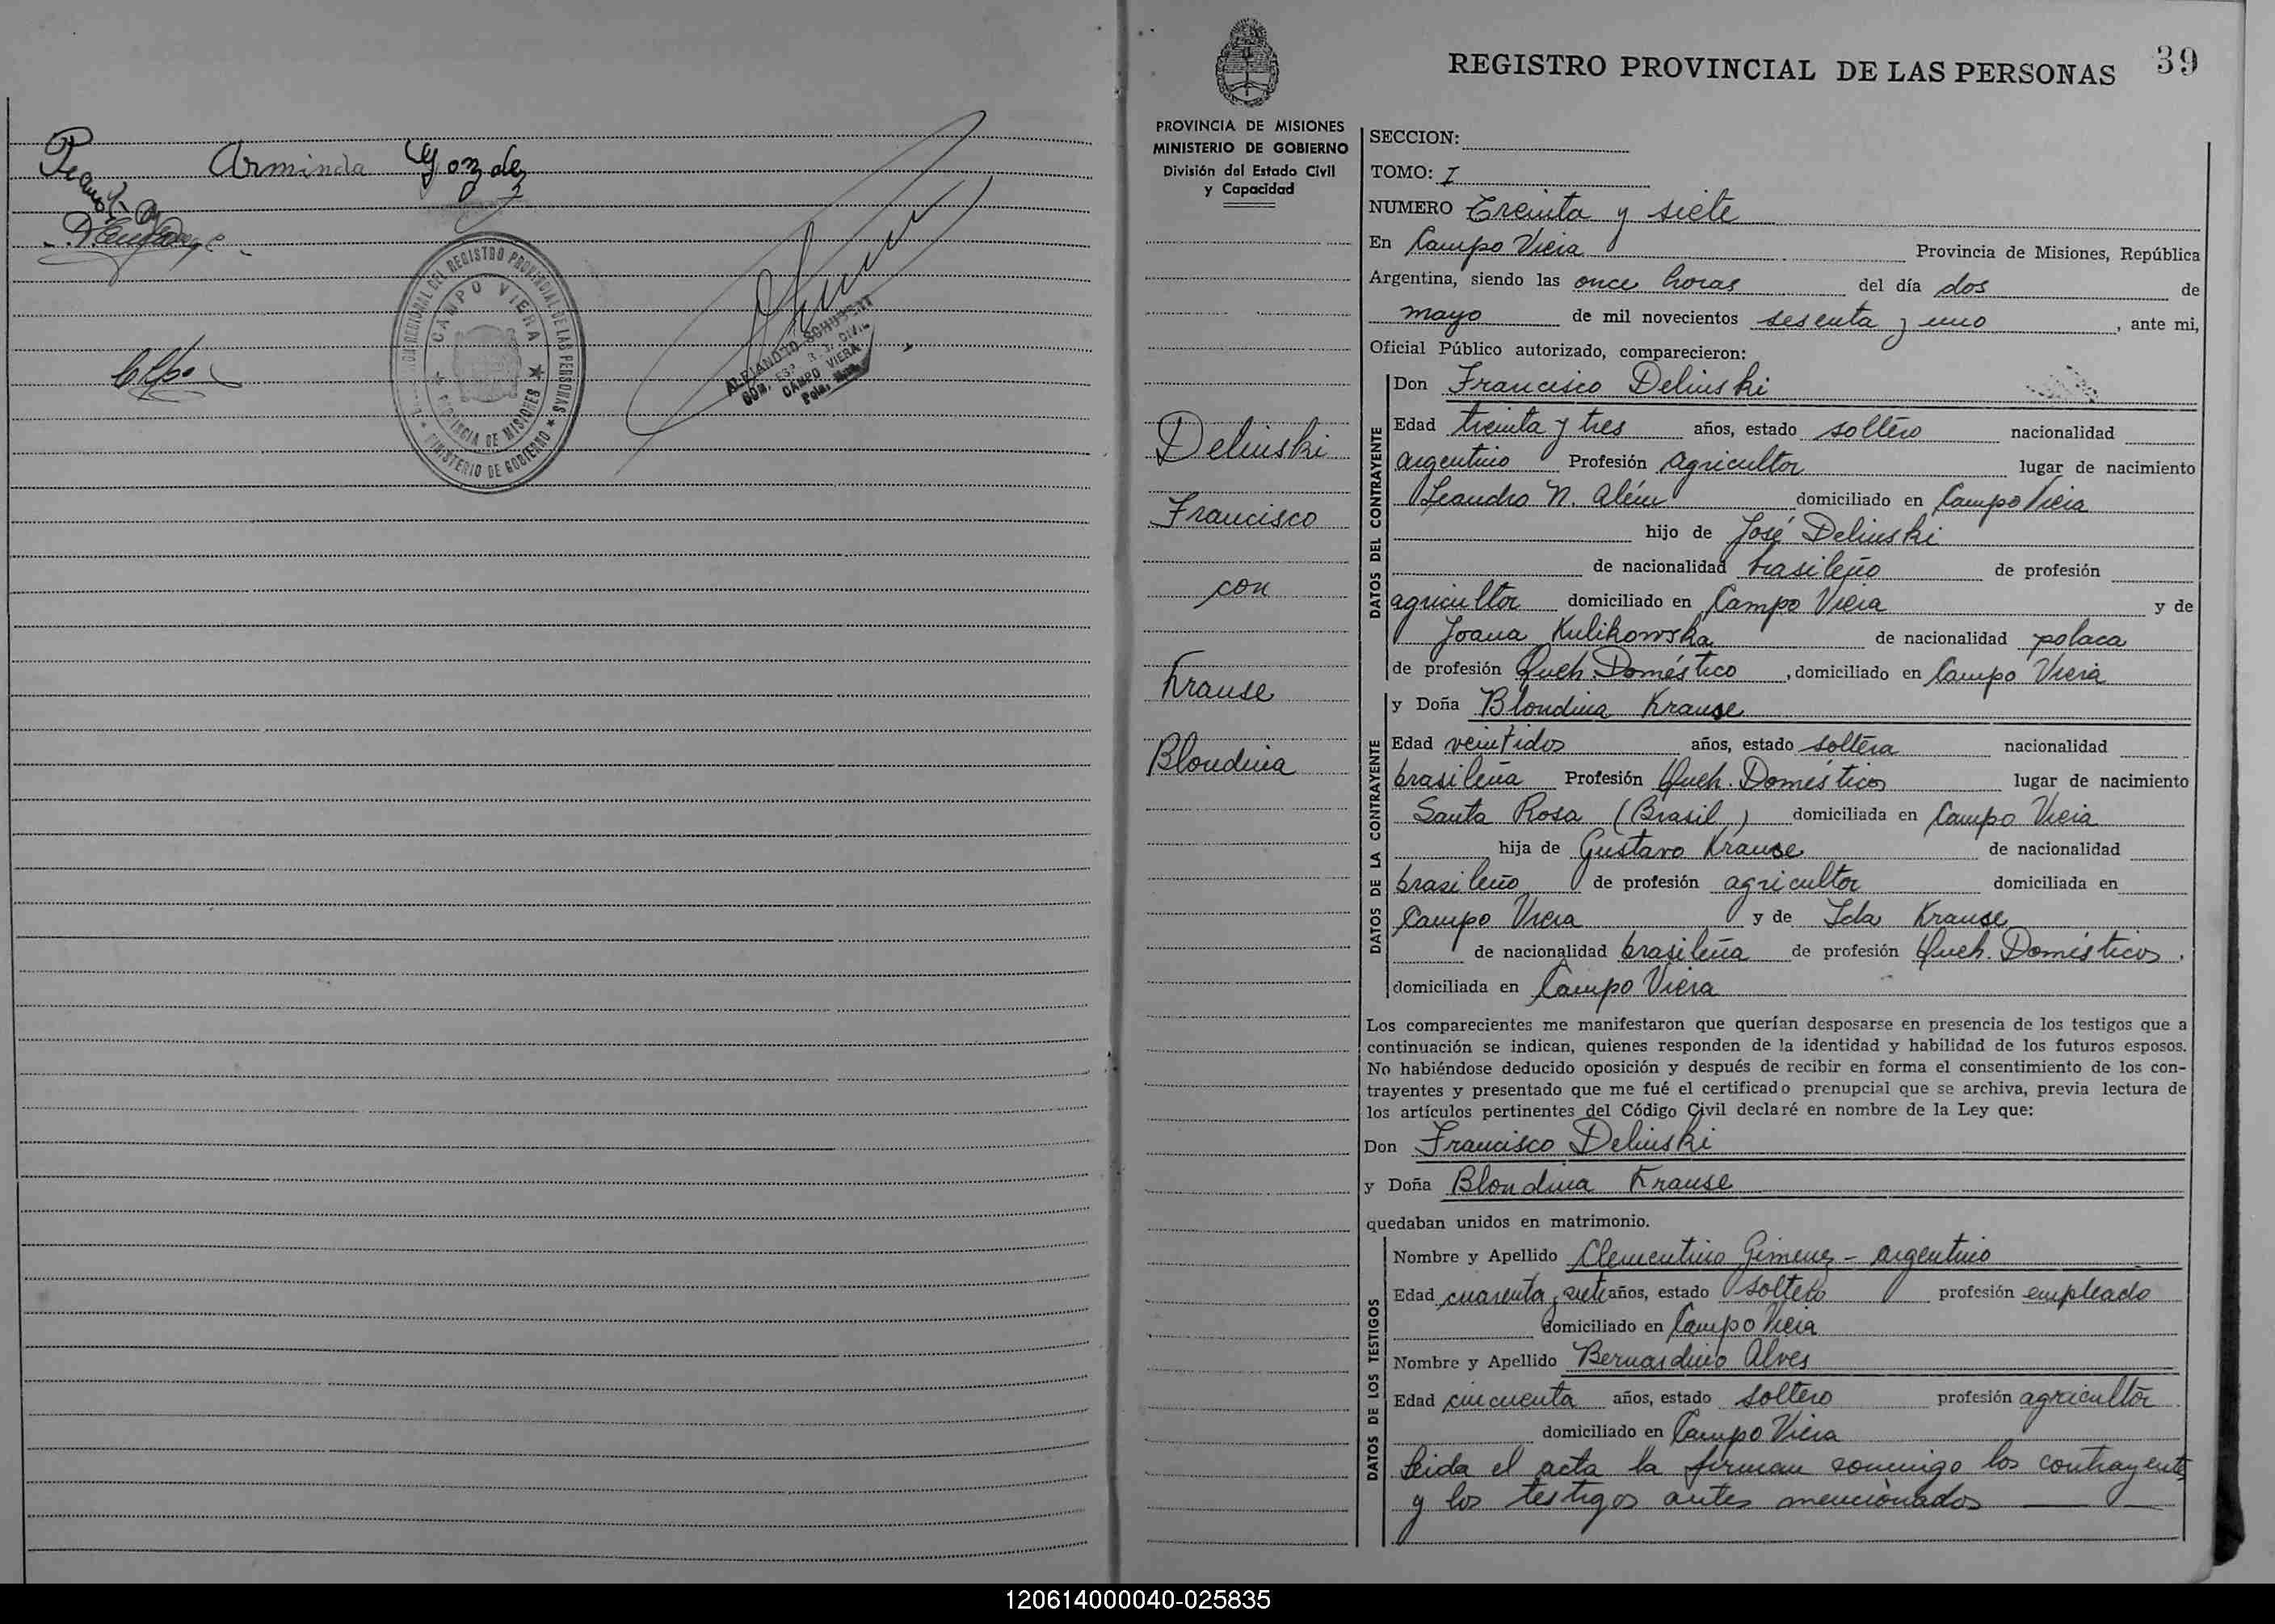 Arminda Gonzalez
DEL REGISTRO PROVINCIAL DE LAS PERSONAS
CAMPO VIERA
PROVINCIA DE MISIONES
MINISTERIO DE GOBIERNO
CAMPO VIERA
39
REGISTRO PROVINCIAL DE LAS PERSONAS
PROVINCIA DE MISIONES
MINISTERIO DE GOBIERNO
División del Estado Civil
y Capacidad
Delinski
Francisco
con
Krause
Blondina
SECCION:
TOMO: I
NUMERO Treinta y siete
En Campo Viera Provincia de Misiones, República
Argentina, siendo las once horas del día dos de
mayo de mil novecientos sesenta y uno, ante mi,
Oficial Público autorizado, comparecieron:
DATOS DEL CONTRAYENTE
Don Francisco Delinski
Edad treinta y tres años, estado soltero nacionalidad
argentino Profesión agricultor lugar de nacimiento
Leandro N. Além domiciliado en Campo Viera
hijo de José Delinski
de nacionalidad brasileño de profesión
agricultor domiciliado en Campo Viera y de
Joana Kulikowska de nacionalidad polaca
de profesión Queh. Doméstico, domiciliado en Campo Viera
DATOS DE LA CONTRAYENTE
y Doña Blondina Krause
Edad veintidos años, estado soltera nacionalidad
brasileña Profesión Queh. Domésticos lugar de nacimiento
Santa Rosa (Brasil) domiciliada en Campo Viera
hija de Gustavo Krause de nacionalidad
brasileño de profesión agricultor domiciliada en
Campo Viera y de Ida Krause
de nacionalidad brasileña de profesión Queh. Domésticos,
domiciliada en Campo Viera
Los comparecientes me manifestaron que querían desposarse en presencia de los testigos que a
continuación se indican, quienes responden de la identidad y habilidad de los futuros esposos.
No habiéndose deducido oposición y después de recibir en forma el consentimiento de los con-
trayentes y presentado que me fué el certificado prenupcial que se archiva, previa lectura de
los artículos pertinentes del Código Civil declaré en nombre de la Ley que:
Don Francisco Delinski
y Doña Blondina Krause
quedaban unidos en matrimonio.
DATOS DE LOS TESTIGOS
Nombre y Apellido Clementino Gimenez - argentino
Edad cuarenta y siete años, estado soltero profesión empleado
domiciliado en Campo Viera
Nombre y Apellido Bernardino Alves
Edad cincuenta años, estado soltero profesión agricultor
domiciliado en Campo Viera
Leida el acta la firman conmigo los contrayentes
y los testigos antes mencionados
120614000040-025835